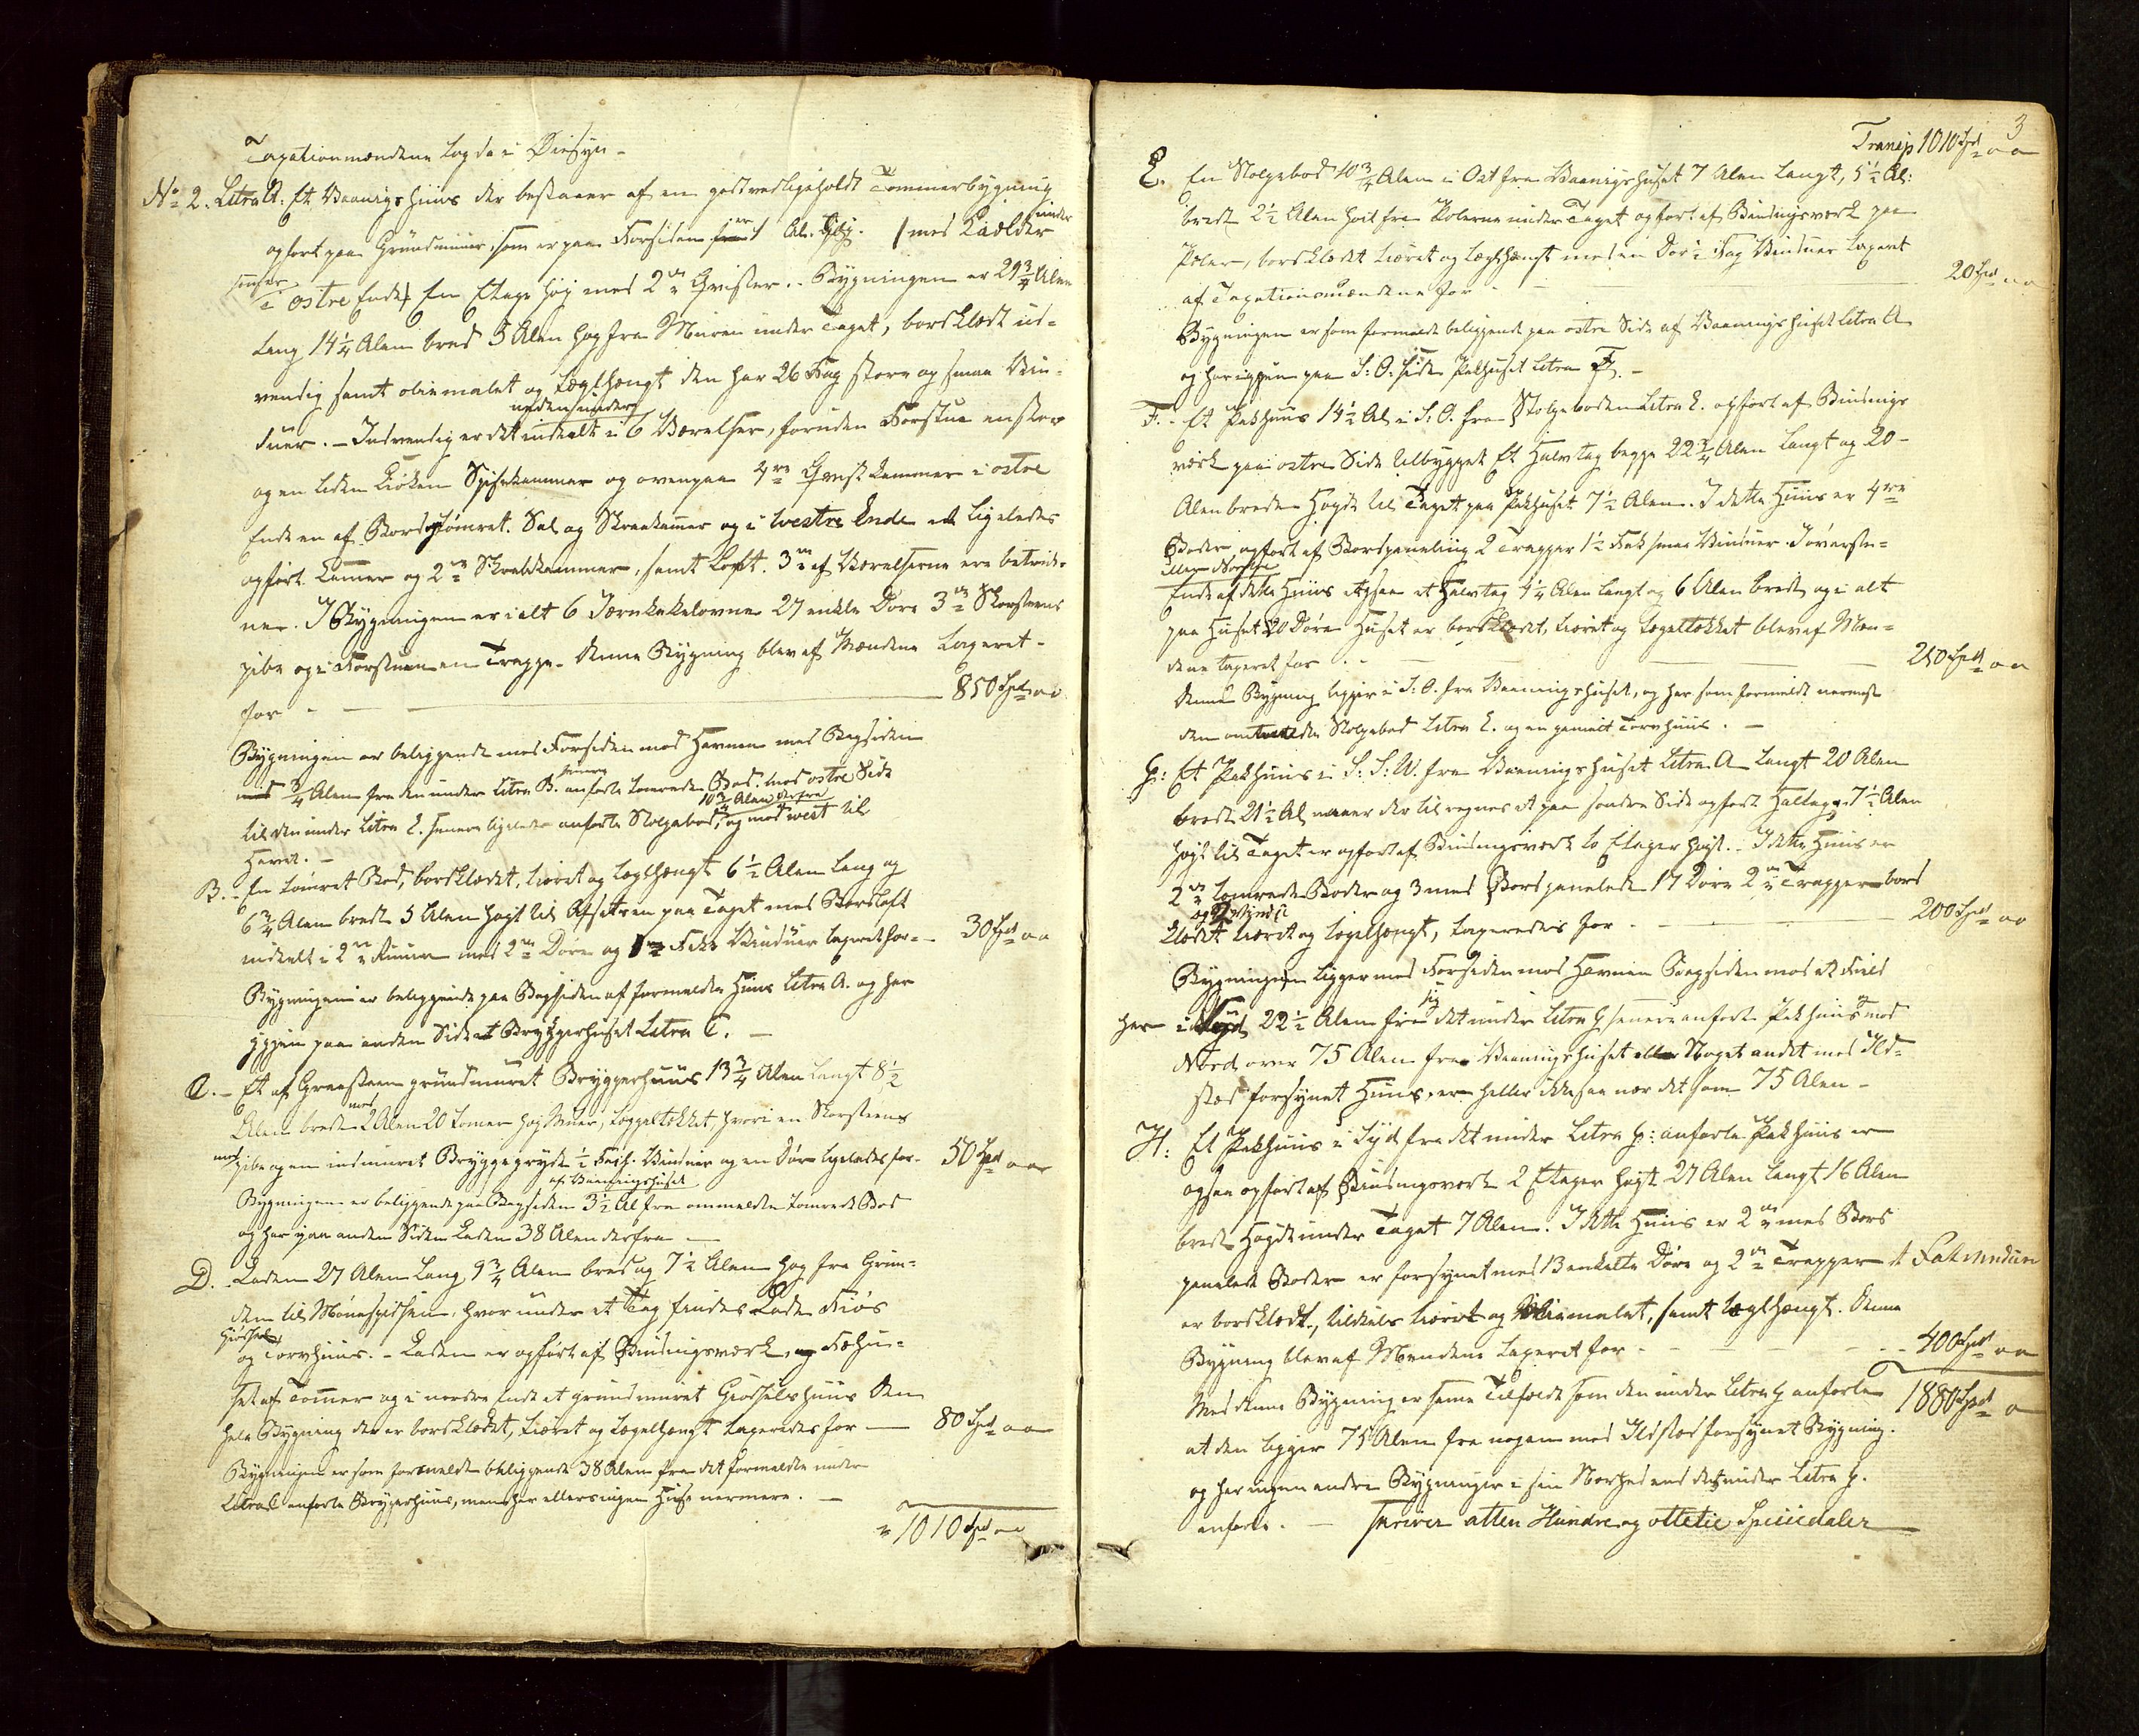 Taxationsmændene tog da i Øiesyn -
No 2. Litra A. Et Vaanigshuus der bestaaer af en godt vedligeholdt Tømmerbygning
opført paa Grundmuur, som er paa Forsiden er 1 Al. høj. / med Kiælder under
i østre Ende / En Etage høj med 2de Qvister. Bygningen er 29 3/4 Alen
lang 14 1/4 Alen bred 5 Alen høy fra Muren under Taget, bordklædt ud-
vendig samt oliemalet og Teglhængt den har 26 Fag store og smaa Vin-
duer. - Indvendig er det nedenunder inddeelt i 6 Værelser, foruden Forstue en stor
og en liden Kiøken Spisekammer og ovenpaa 4re Qvistkammer i østre
Ende en af Bord opført. Sal og Skraakamer og i westre Ende et ligeledes
opført Kamer og 2de Skraakammer, samt Loft. 3de af Værelserne ere betrukk-
ne. I Bygningen er i alt 6 Jærnkakelovne 27 enkle Døre 3de Skorsteens
piber og i Forstuen en Trappe. Denne Bygning blev af Mændene taxeret
for - 850 Spd " "
Bygningen er beliggende med Forsiden mod Havnen med Bagsiden
3/4 Alen fra den under Litra B. senere anførte tømrede Bod. mod østre Side
til den under Litra E. senere ligeledes anførte Stolpebod, 10 3/4 Alen derfra og mod west til
Havet. -
B. - En tømret Bod, bordklædet, tiæret og teglhængt 6 1/2 Alen lang og
6 3/4 Alen bredt 5 Alen højt til Afsatsen paa Taget med Bordloft
inddelt i 2de Rum med 2de Døre og 1 1/2 Fakk Vinduer taxeret for - 30 Spd " "
Bygningen er beliggende paa Bagsiden af formeldte Huus Litra A. og har
igjen paa anden Side et Bryggerhuset Litra C. -
C. - Et af Graasteen grundmuret Bryggerhuus 13 3/4 Alen langt 8 1/2
Alen bredt med 2 Alen 20 Tomer høj Muur, teggeltekket, hvori en Skorsteens
pibe og en indmuret Bryggegryde 1/2 Fag Vinduer og en Dør ligeledes for - 50 Spd " "
Bygningen er beliggende paa Bagsiden af Vaaningshuset 3 1/2 Al fra ommeldte tømrede Bod
og har paa anden Siden Laden 38 Alen derfra -
D. - Laden 27 Alen lang 9 3/4 Alen bred og 7 1/2 Alen høg fra Grun-
den til Mønespidsen, hvorunder et Tag findes Lade Fiøs
og Torvhuus. - Laden er opført af Bindingsværk, og Fæhu-
set af Tømer og i nordre Ende et grundmuret Giødselshuus Den
hele Bygning der er bordklædet, tiæret og tegelhængt taxeredes for - 80 Spd " "
Bygningen er som formeldt beliggende 38 Alen fra det formeldte under
Litra C anførte Bryggerhuus, men har ellers ingen Huse nærmere. -
" 1010 Spd " "
3
Transp 1010 Spd " "
E. En Stolpebod 10 3/4 Alen i Ost fra Vaanigshuset 7 Alen langt, 5 1/2 Al:
bredt 2 1/2 Alen høit fra Pælerne under Taget opført af Bindingsværk paa
Pæler, bordklædt tiæret og teglhængt med en Dør 1 Fag Vinduer taxeret
af Taxationsmændene for - 20 Spd " "
Bygningen er som formeldt beliggende paa østre Side af Vaaningshuset Litra A
og har igjen paa S: O. Side Pakhuset Litra F. -
F. - Et Pakhuus 14 1/2 Al i S. O. fra Stolpeboden Litra E. opført af Bindings
værk paa østre Side tilbygget Et Halvtag begge 22 3/4 Alen langt og 20 -
Alen bredt Høyde til Taget paa Pakhuset 7 1/2 Alen. I dette Huus er 4re
Boder opført af Bordpaneling 2 Trapper 1 1/2 Fak smaa Vinduer. I øverste
eller Nordre
Ende af dette Huus ogsaa et Halvtag 4 1/4 Alen langt og 6 Alen bredt, og i alt
paa Huset 20 Døre Huset er bordklædet, tiæret og tegeltekket blev af Mæn-
dene taxeret for - 250 Spd " "
Denne Bygning ligger i S: O. fra Vaaningshuset, og har som formeldt nærmest
den omtalte Stolpebod Litra E. og en gamelt Torvhuus. -
G: Et Pakhuus i S: S: W. fra Vaaningshuset Litra A langt 20 Alen
bredt 21 1/2 Al naar der tilregnes et paa søndre Side opført Halvtag, 7 1/2 Alen
højt til Taget er opført af Bindingsværk to Etager højt. - I dette Huus er
2de tømrede Boder og 3 med Bord panelede 17 Døre 2de Trapper bord
klædt tiæret og tegelhængt, taxeredes for - 200 Spd " "
Bygningen ligger med Forsiden mod Havnen Bagsiden mod et Field
har i Syd 22 1/2 Alen fra sig det under Litra H senere anførte Pakhuus og mod
Nord over 75 Alen fra Vaaningshuset eller Noget andet med Ild-
sted forsynet Huus, er heller ikke saa nær det som 75 Alen -
H: Et Pakhuus i Syd fra det under Litra G: anførte Pakhuus er
ogsaa opført af Bindingsværk 2 Etager høgt 27 Alen langt 16 Alen
bredt Høgde under Taget 7 Alen. I dette Huus er 2de med Bord
panelede Boder er forsynet med 13 enkelte Døre og 2de Trapper 4 Fak Vinduer
er bordklædt, tildeels tiæret og oliemalet, samt teglhængt. Denne
Bygning blev af Mændene taxeret for - 400 Spd " "
Med denne Bygning er samme Tilfælde som den under Litra G anførte 1880 Spd "
at den ligger 75 Alen fra nogen med Ildsted forsynet Bygning.
og har ingen andre Bygninger i sin Nærhed end det under Litra G.
anførte. - skriver atten Hundre og ottetie Speciedaler